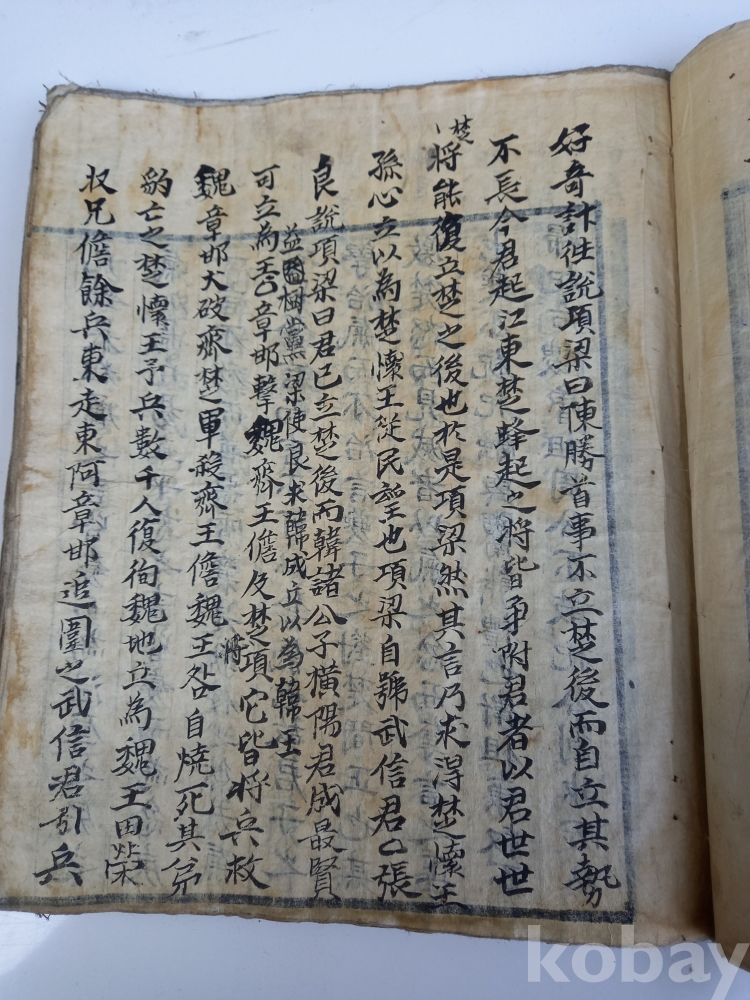 好奇計往說項梁曰陳勝首事不立楚後而自立其勢
不長今君起江東楚蜂起之將皆爭附君者以君世世
楚將能復立楚之後也於是項梁然其言乃求得楚懷王
孫心立以為楚懷王從民望也項梁自號武信君○張
良說項梁曰君已立楚後而韓諸公子橫陽君成最賢
可立為王益樹黨梁使良求韓成立以為韓王○章邯擊魏齊王儋及楚將項它皆將兵救
魏章邯大破齊楚軍殺齊王儋魏王咎自燒死其弟
豹亡之楚懷王予兵數千人復徇魏地立為魏王田榮
收兄儋餘兵東走東阿章邯追圍之武信君引兵
kobay